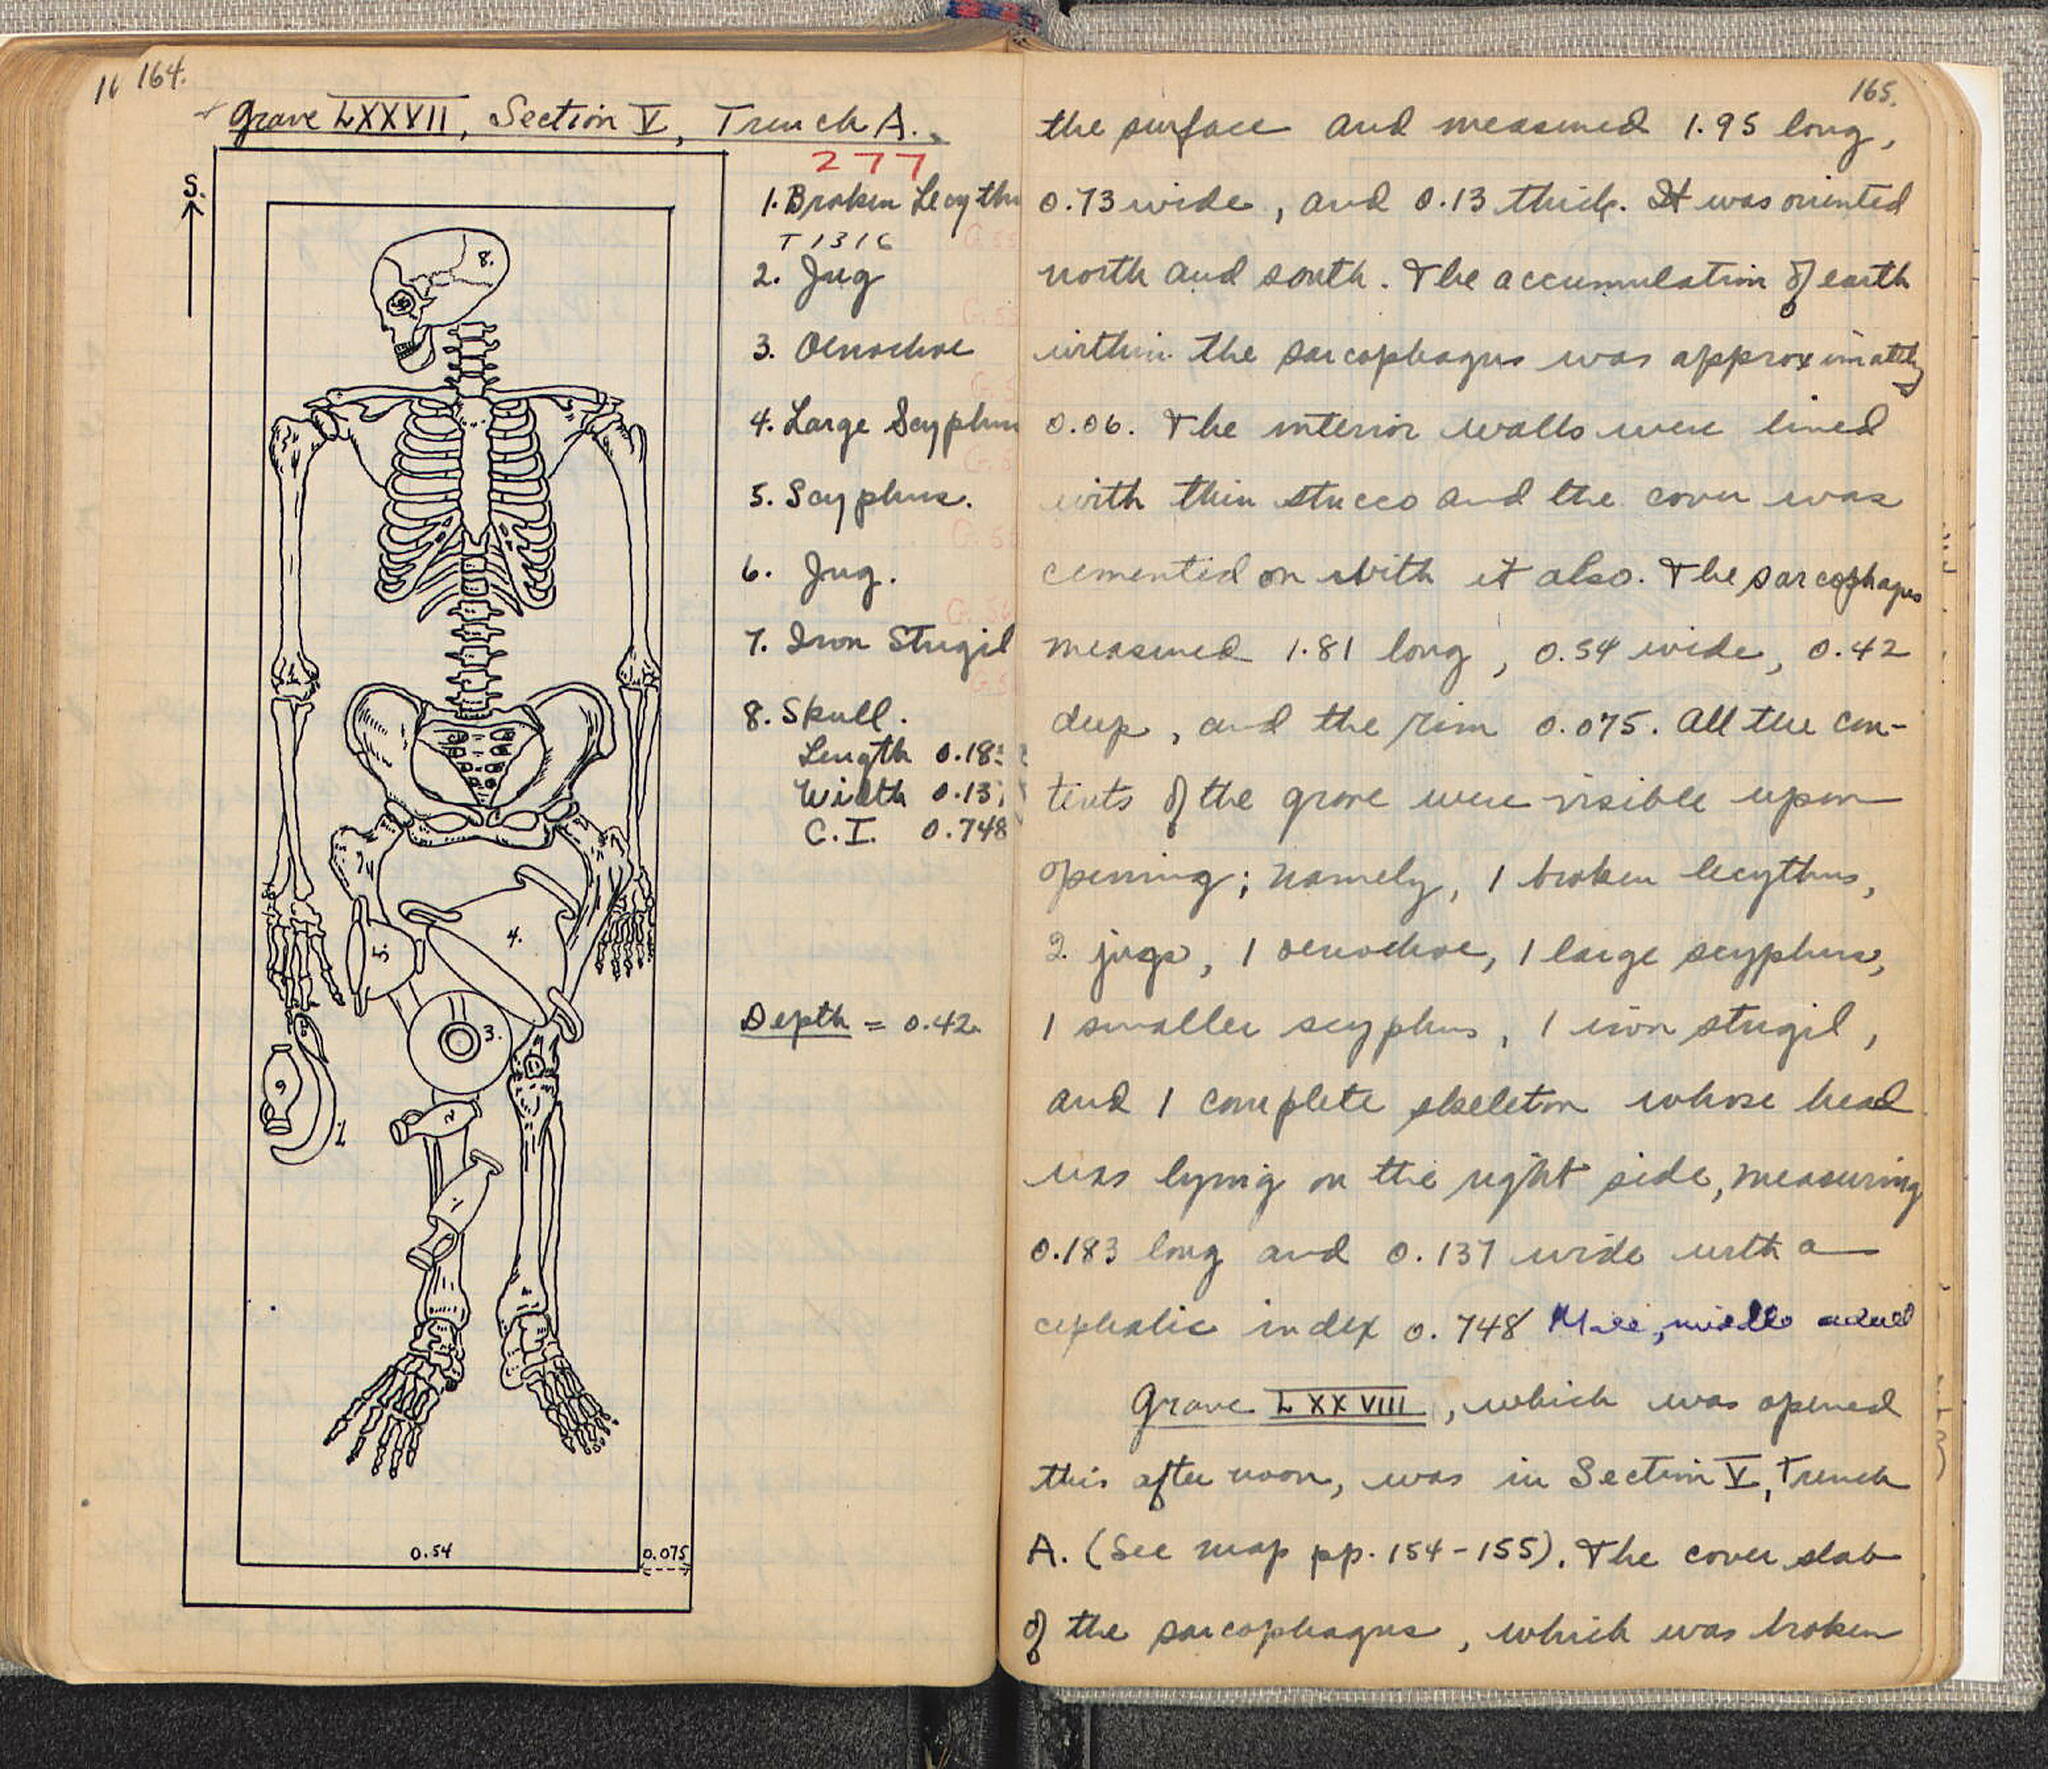 164.
Grave LXXVII, Section V, Trench A.
277
S.
1. Broken Lecythu
T 1316
2. Jug
3. Oenochoe
4. Large Scyphus
5. Scyphus.
6. Jug.
7. Iron Strigil
8. Skull.
Length 0.18
Width 0.13
C.I. 0.748
Depth = 0.42
8.
4.
5.
3.
6
7.
2
1
0.54
0.075
165.
the surface and measured 1.95 long,
0.73 wide, and 0.13 thick. It was oriented
north and south. The accumulation of earth
within the sarcophagus was approximately
0.06. The interior walls were lined
with thin stucco and the cover was
cemented on with it also. The sarcophagus
measured 1.81 long, 0.54 wide, 0.42
deep, and the rim 0.075. All the con-
tents of the grave were visible upon
opening; namely, 1 broken lecythus,
2 jugs, 1 oenochoe, 1 large scyphus,
1 smaller scyphus, 1 iron strigil,
and 1 complete skeleton whose head
was lying on the right side, measuring
0.183 long and 0.137 wide with a
cephalic index 0.748 Male, middle adult
Grave LXXVIII, which was opened
this afternoon, was in Section V, Trench
A. (See map pp. 154-155). The cover slab
of the sarcophagus, which was broken